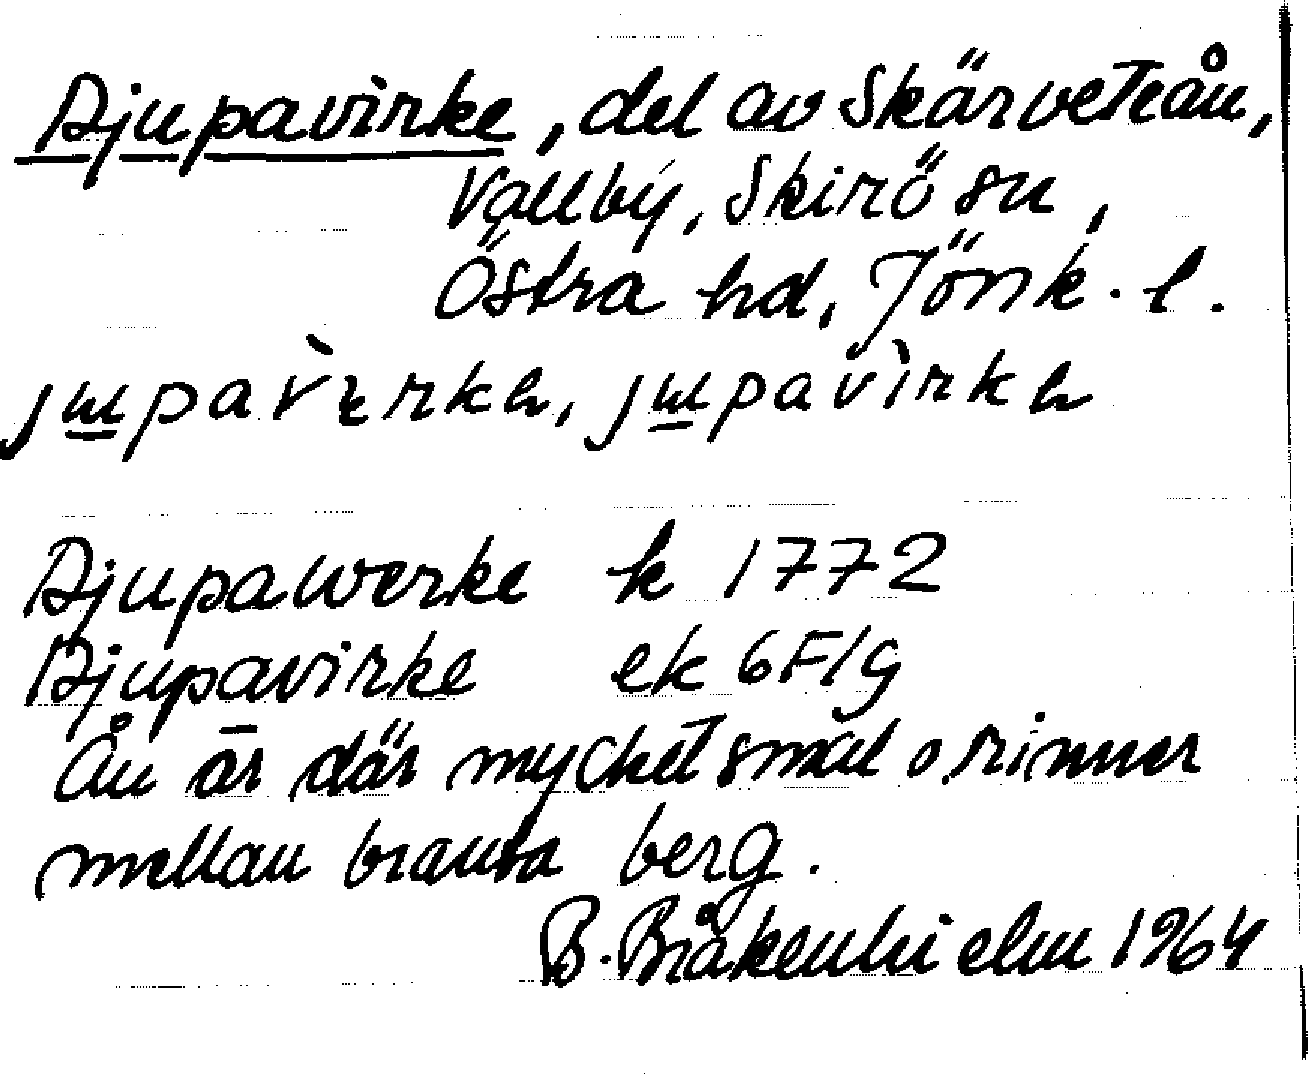 Djupavirke, del av Skärveteån,
Vallby, Skirö sn,
Östra hd, Jönk. l.
Djupawerke k 1772
Djupavirke ek 6F/g
Ån är där mycket smal o rinner
mellan branta berg.
B. Bråkenhielm 1964